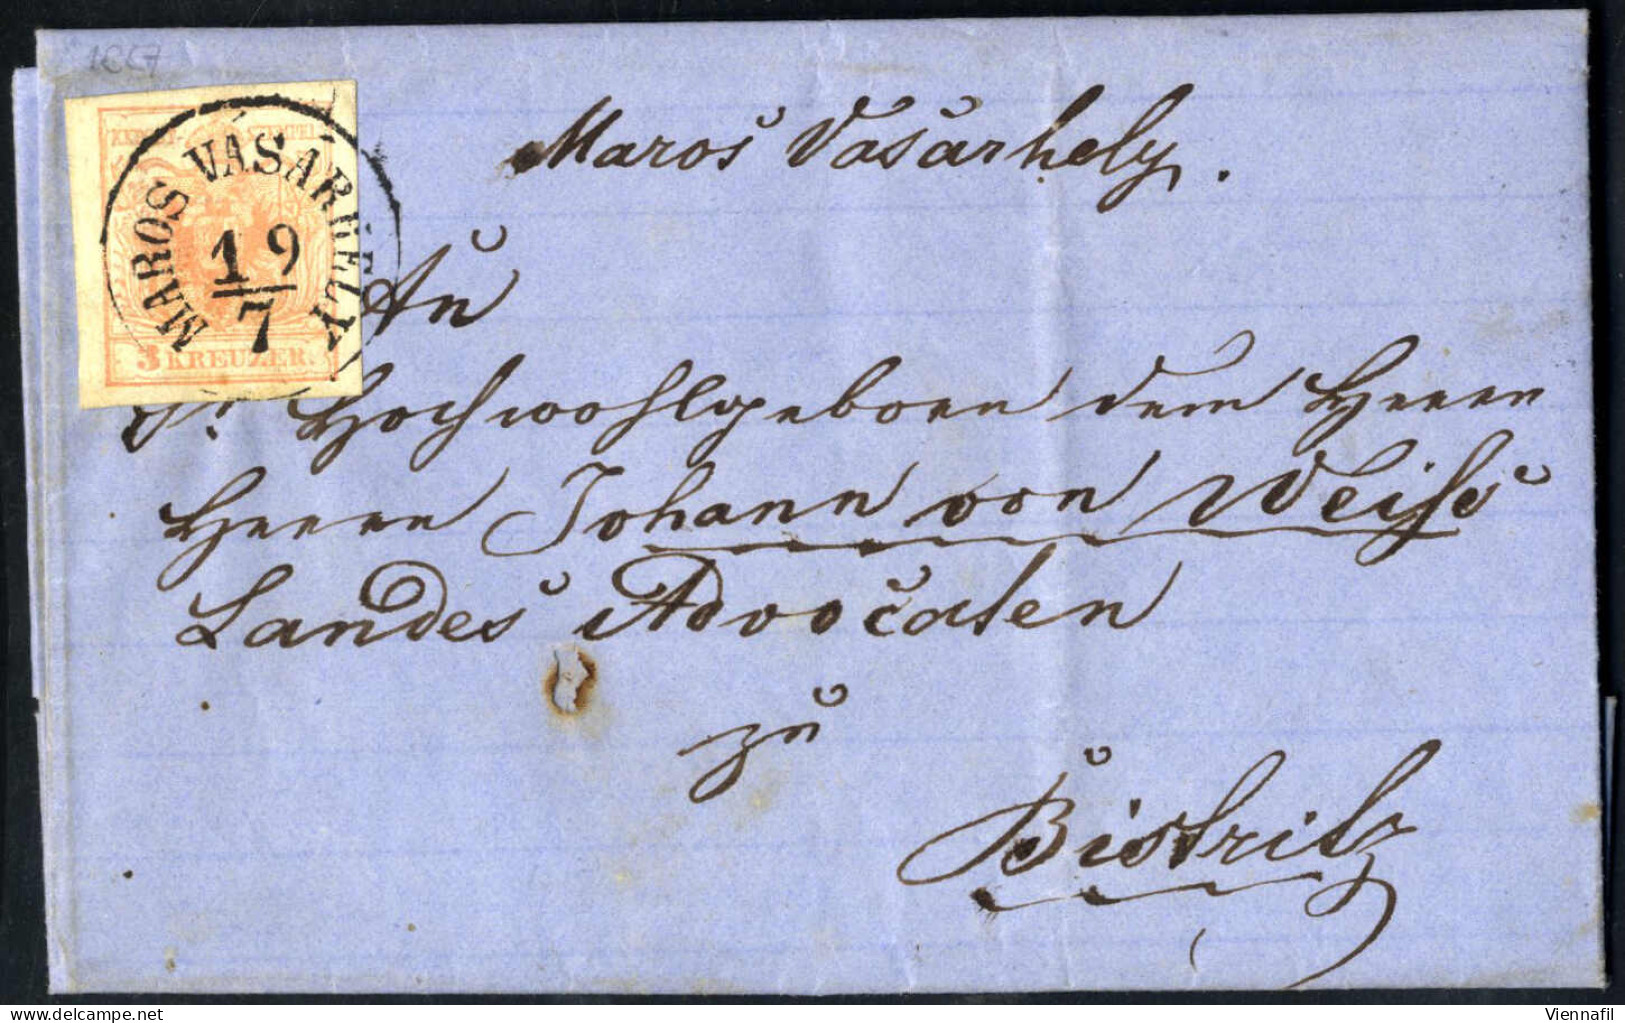 Maros Vasarhely.
MAROS VÁSÁRHELY
19
7
3 KREUZER.
An
Sr Hochwohlgeboren dem Herrn
Herrn Johann von Weiss
Landes Advocaten
zu
Bistritz
Viennafil